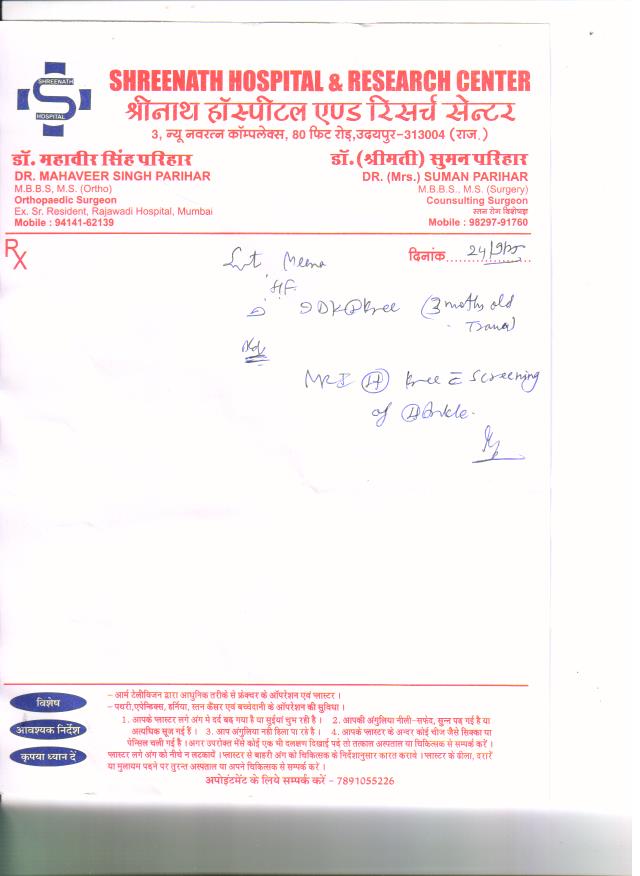 SHREENATH
S
HOSPITAL
SHREENATH HOSPITAL & RESEARCH CENTER
श्रीनाथ हॉस्पीटल एण्ड रिसर्च सेन्टर
3, न्यू नवरत्न कॉम्पलेक्स, 80 फिट रोड़,उदयपुर-313004 (राज.)
डॉ. महावीर सिंह परिहार
DR. MAHAVEER SINGH PARIHAR
M.B.B.S, M.S. (Ortho)
Orthopaedic Surgeon
Ex. Sr. Resident, Rajawadi Hospital, Mumbai
Mobile : 94141-62139
डॉ. (श्रीमती) सुमन परिहार
DR. (Mrs.) SUMAN PARIHAR
M.B.B.S., M.S. (Surgery)
Counsulting Surgeon
स्तन रोग विशेषज्ञ
Mobile : 98297-91760
Rx
दिनांक
Meena
Knee (3 moths old
MRI Knee screening
of Ankle.
विशेष
आवश्यक निर्देश
कृपया ध्यान दें
– आर्म टेलीविजन द्वारा आधुनिक तरीके से फ्रेक्चर के ऑपरेशन एवं प्लास्टर ।
– पथरी,एपेन्डिक्स, हर्निया, स्तन कैंसर एवं बच्चेदानी के ऑपरेशन की सुविधा ।
1. आपके प्लास्टर लगे अंग मे दर्द बढ़ गया है या सुईयां चुभ रही है । 2. आपकी अंगुलिया नीली-सफेद, सुन्न पड़ गई है या
अत्यधिक सूज गई हैं । 3. आप अंगुलिया नही हिला पा रहे है । 4. आपके प्लास्टर के अन्दर कोई चीज जैसे सिक्का या
पेन्सिल चली गई है ।अगर उपरोक्त मेंसे कोई एक भी लक्षण दिखाई पडे तो तत्काल अस्पताल या चिकित्सक से सम्पर्क करें ।
प्लास्टर लगे अंग को नीचे न लटकायें । प्लास्टर से बाहरी अंग को चिकित्सक के निर्देशानुसार कारत करावे । प्लास्टर के ढीला, दरारें
या मुलायम पड़ने पर तुरन्त अस्पताल या अपने चिकित्सक से सम्पर्क करें ।
अपोइंटमेण्ट के लिये सम्पर्क करें – 7891055226